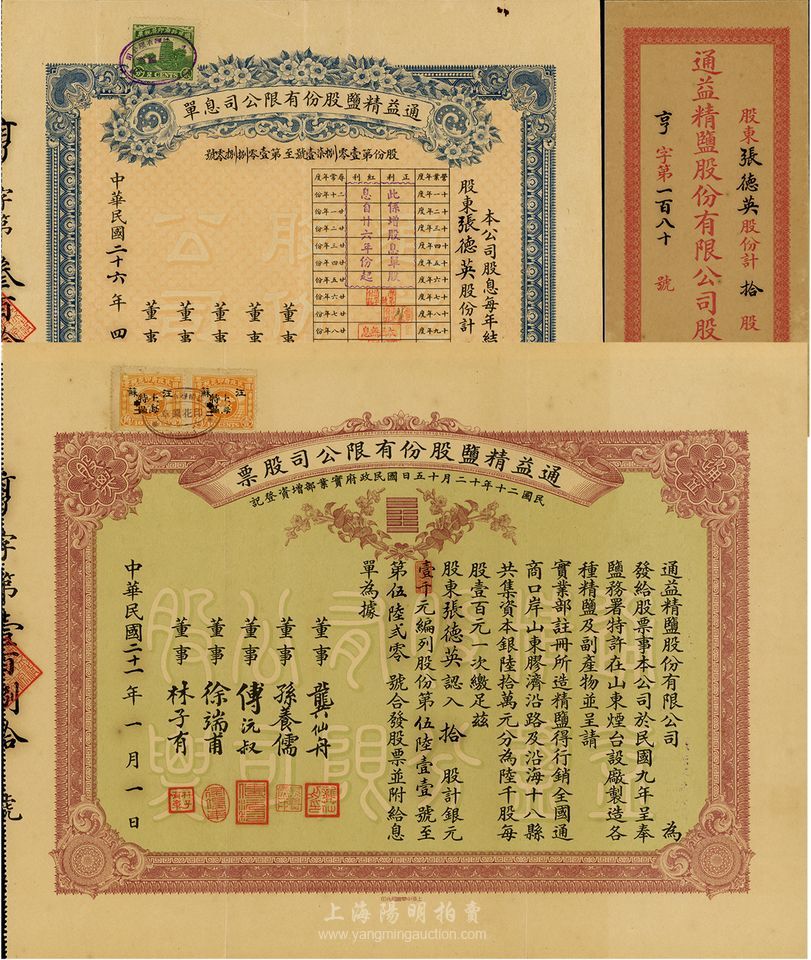 通益精鹽股份有限公司息單
股份第壹零捌柒壹號至第壹零捌捌零號
本公司股息每年結
股東張德英股份計
營業年度
正利
紅利
存常年度
此係增股息單股
息自廿六年份起
董事
董事
董事
董事
董事
中華民國二十六年 四
通益精鹽股份有限公司股
股東張德英股份計拾股
亨字第一百八十號
江蘇
上海
特區
通益精鹽股份有限公司股票
民國二十年十二月十五日國民政府實業部增資登記
通益精鹽股份有限公司 為
發給股票事本公司於民國九年呈奉
鹽務署特許在山東煙台設廠製造各
種精鹽及副產物並呈請
實業部註冊所造精鹽得行銷全國通
商口岸山東膠濟沿路及沿海十八縣
共集資本銀陸拾萬元分為陸千股每
股壹百元一次繳足茲
股東張德英認入 拾 股計銀元
壹千元編列股份第伍陸壹壹號至
第伍陸貳零 號合發股票並附給息
單為據
董事 龔仙舟
董事 孫養儒
董事 傅沅叔
董事 徐端甫
董事 林子有
中華民國二十一年 一月 一日
字第叁百
字第壹百捌拾號
上海陽明拍賣
www.yangmingauction.com